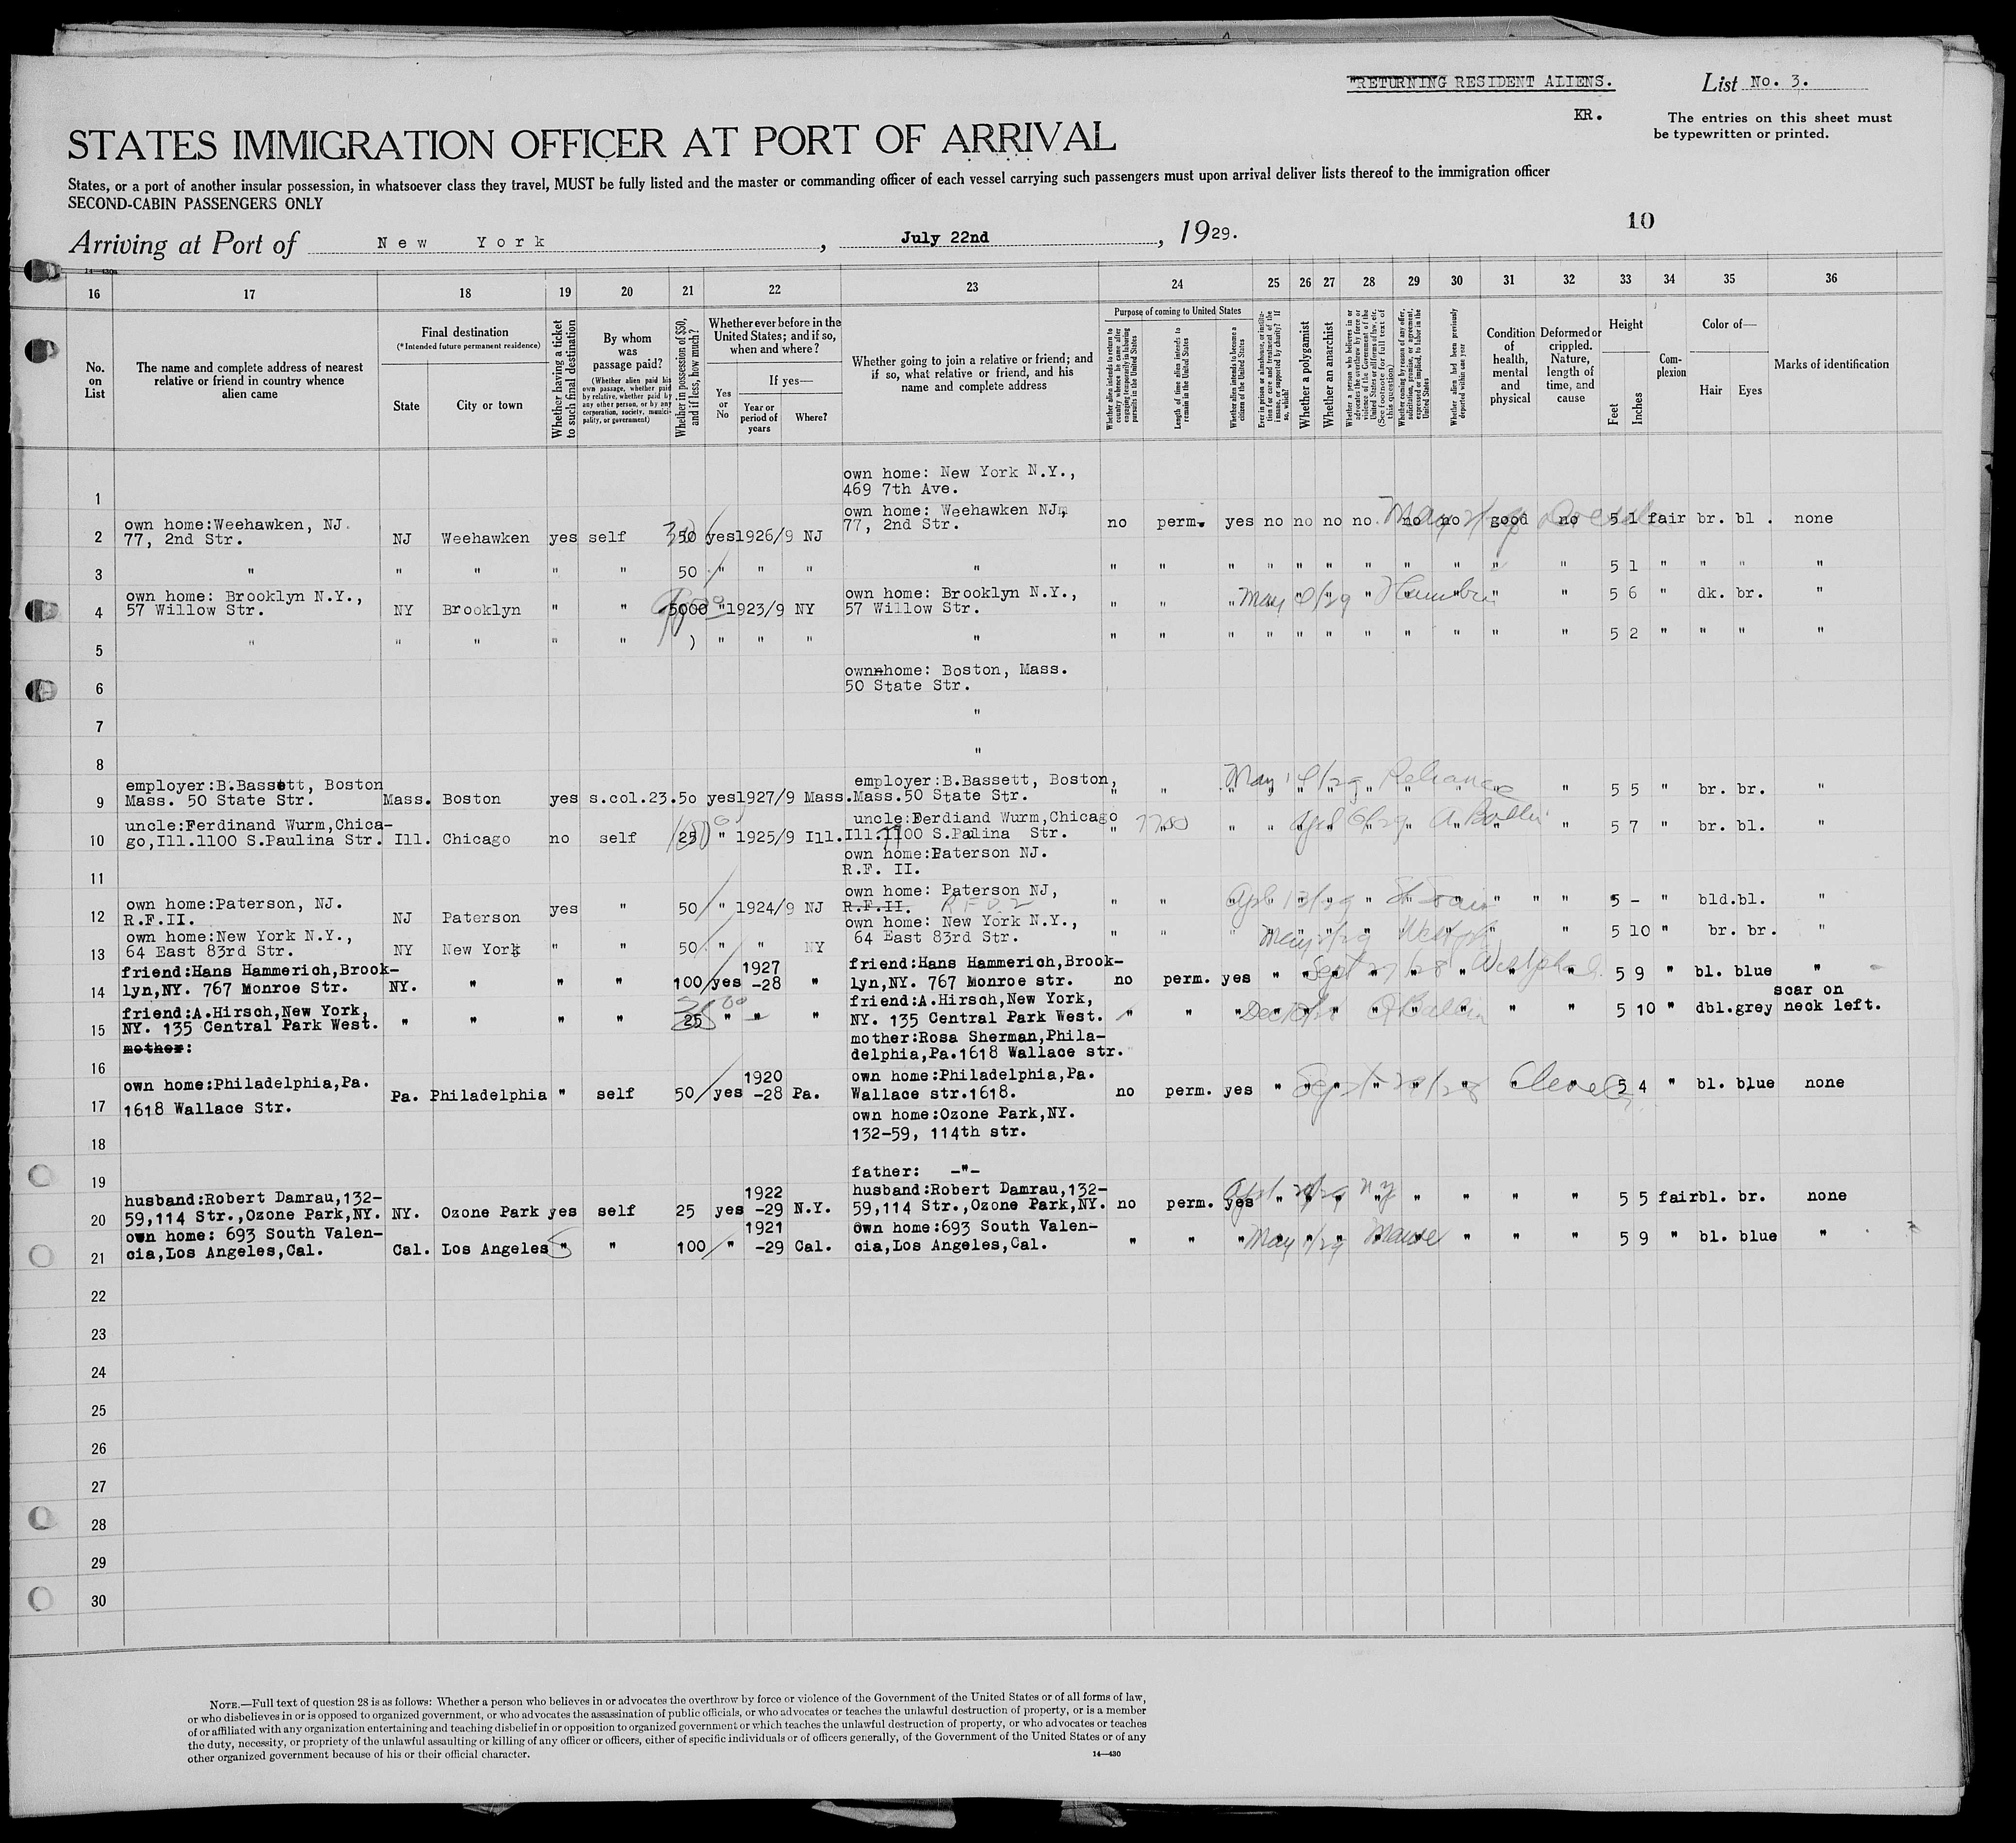 "RETURNING RESIDENT ALIENS.
List No. 3.
KR.
The entries on this sheet must
be typewritten or printed.
STATES IMMIGRATION OFFICER AT PORT OF ARRIVAL
States, or a port of another insular possession, in whatsoever class they travel, MUST be fully listed and the master or commanding officer of each vessel carrying such passengers must upon arrival deliver lists thereof to the immigration officer
SECOND-CABIN PASSENGERS ONLY
10
Arriving at Port of New York, July 22nd, 1929.
14—430a
16 17 18 19 20 21 22 23 24 25 26 27 28 29 30 31 32 33 34 35 36
No. on List
The name and complete address of nearest relative or friend in country whence alien came
Final destination
(*Intended future permanent residence)
State
City or town
Whether having a ticket to such final destination
By whom was passage paid?
(Whether alien paid his own passage, whether paid by relative, whether paid by any other person, or by any corporation, society, municipality, or government)
Whether in possession of $50, and if less, how much?
Whether ever before in the United States; and if so, when and where?
Yes or No
If yes—
Year or period of years
Where?
Whether going to join a relative or friend; and if so, what relative or friend, and his name and complete address
Purpose of coming to United States
Whether alien intends to return to country whence he came after engaging temporarily in laboring pursuits in the United States
Length of time alien intends to remain in the United States
Whether alien intends to become a citizen of the United States
Ever in prison or almshouse, or institution for care and treatment of the insane, or supported by charity? If so, which?
Whether a polygamist
Whether an anarchist
Whether a person who believes in or advocates the overthrow by force or violence of the Government of the United States or all forms of law, etc. (See footnote for full text of this question)
Whether coming by reason of any offer, solicitation, promise, or agreement, expressed or implied, to labor in the United States
Whether alien had been previously deported within one year
Condition of health, mental and physical
Deformed or crippled. Nature, length of time, and cause
Height
Feet
Inches
Complexion
Color of—
Hair
Eyes
Marks of identification
1 own home: New York N.Y.,
469 7th Ave.
2 own home:Weehawken, NJ. 77, 2nd Str. NJ Weehawken yes self 50 yes 1926/9 NJ own home: Weehawken NJ, 77, 2nd Str. no perm. yes no no no no. no no good no 5 1 fair br. bl. none
3 " " " " " 50 " " " " " " " " " " " " " " " 5 1 " " " "
4 own home: Brooklyn N.Y., 57 Willow Str. NY Brooklyn " " 5000 " 1923/9 NY own home: Brooklyn N.Y., 57 Willow Str. " " " May /29 " " " " 5 6 " dk. br. "
5 " " " " " ) " " " " " " " " " " " " " " " 5 2 " " " "
6 own home: Boston, Mass.
50 State Str.
7 "
8 "
9 employer:B.Bassett, Boston Mass. 50 State Str. Mass. Boston yes s.col. 23.50 yes 1927/9 Mass. employer:B.Bassett, Boston, Mass.50 State Str. " " " May /29 Reliance " 5 5 " br. br. "
10 uncle:Ferdinand Wurm,Chicago,Ill.1100 S.Paulina Str. Ill. Chicago no self 25 " 1925/9 Ill. uncle:Ferdiand Wurm,Chicago Ill.1100 S.Palina Str. " " " " April 6/29 A. Ballin " 5 7 " br. bl. "
11 own home:Paterson NJ.
R.F. II.
12 own home:Paterson, NJ. R.F.II. NJ Paterson yes " 50 " 1924/9 NJ own home: Paterson NJ, R.F.II. R F D 2 " " " Apl 13/29 " " 5 - " bld.bl. "
13 own home:New York N.Y., 64 East 83rd Str. NY New York " " 50 " " NY own home: New York N.Y., 64 East 83rd Str. " " " May /29 " 5 10 " br. br. "
14 friend:Hans Hammerich,Brooklyn,NY. 767 Monroe Str. NY. " " " 100 yes 1927-28 " friend:Hans Hammerich,Brooklyn,NY. 767 Monroe str. no perm. yes " Sept 27/28 Westphal. 5 9 " bl. blue "
15 friend:A.Hirsch,New York, NY. 135 Central Park West. " " " " 25 " " " friend:A.Hirsch,New York, NY. 135 Central Park West. " " " Dec /28 A Ballin " " 5 10 " dbl.grey scar on neck left.
mother:
16 mother:Rosa Sherman,Philadelphia,Pa.1618 Wallace str.
17 own home:Philadelphia,Pa. 1618 Wallace Str. Pa. Philadelphia " self 50 yes 1920-28 Pa. own home:Philadelphia,Pa. Wallace str.1618. no perm. yes " Sept /28 " " 5 4 " bl. blue none
18 own home:Ozone Park,NY.
132-59, 114th str.
19 father: -"-
20 husband:Robert Damrau,132-59,114 Str.,Ozone Park,NY. NY. Ozone Park yes self 25 yes 1922-29 N.Y. husband:Robert Damrau,132-59,114 Str.,Ozone Park,NY. no perm. yes " " " " " " " " 5 5 fair bl. br. none
21 own home: 693 South Valencia,Los Angeles,Cal. Cal. Los Angeles " " 100 " 1921-29 Cal. own home:693 South Valencia,Los Angeles,Cal. " " " May /29 " " " 5 9 " bl. blue "
22
23
24
25
26
27
28
29
30
NOTE.—Full text of question 28 is as follows: Whether a person who believes in or advocates the overthrow by force or violence of the Government of the United States or of all forms of law,
or who disbelieves in or is opposed to organized government, or who advocates the assassination of public officials, or who advocates or teaches the unlawful destruction of property, or is a member
of or affiliated with any organization entertaining and teaching disbelief in or opposition to organized government or which teaches the unlawful destruction of property, or who advocates or teaches
the duty, necessity, or propriety of the unlawful assaulting or killing of any officer or officers, either of specific individuals or of officers generally, of the Government of the United States or of any
other organized government because of his or their official character.
14—430